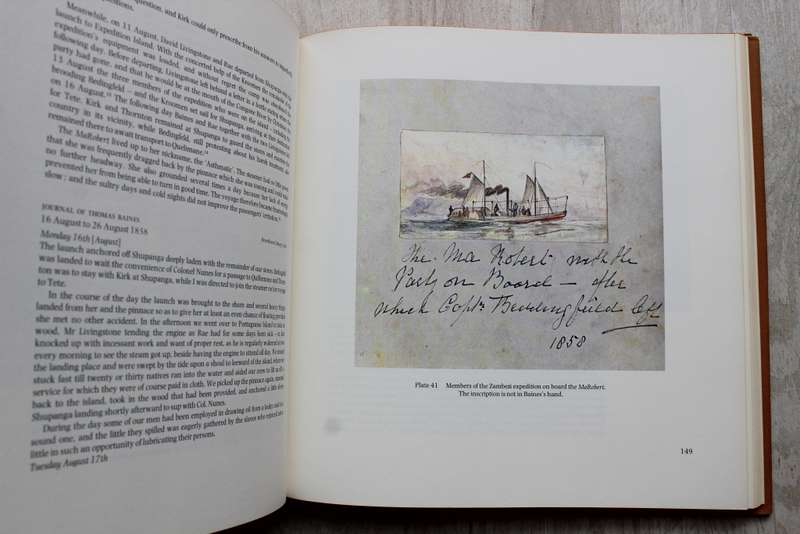 question, and Kirk could only prescribe from his answers to
Meanwhile, on 11 August, David Livingstone and Rae departed from Shupanga with the
launch to Expedition Island. With the concerted help of the Kroomen the remainder of the
expedition's equipment was loaded, and without regret the camp was abandoned the
following day. Before departing, Livingstone left behind a letter in a bottle stating that the
party had gone, and that he would be at the mouth of the Congone River by October. On
13 August the three members of the expedition who were on the island – including
brooding Bedingfeld – and the Kroomen set sail for Shupanga, arriving at their destination
on 16 August. The following day Baines and Rae together with the two Livingstones left
for Tete. Kirk and Thornton remained at Shupanga to guard the stores and examine the
country in its vicinity, while Bedingfeld, still protesting about his harsh treatment, also
remained there to await transport to Quelimane.
The MaRobert lived up to her nickname, the 'Asthmatic'. The steamer had so little power
that she was frequently dragged back by the pinnace which she was towing and could make
no further headway. She also grounded several times a day because her lack of
prevented her from being able to turn in good time. The voyage therefore became
slow; and the sultry days and cold nights did not improve the passengers'
JOURNAL OF THOMAS BAINES
16 August to 26 August 1858
Monday 16th [August]
The launch anchored off Shupanga deeply laden with the remainder of our stores. Bedingfeld
was landed to wait the convenience of Colonel Nunes for a passage to Quilimane and Thorn-
ton was to stay with Kirk at Shupanga, while I was directed to join the steamer on her voyage
to Tete.
In the course of the day the launch was brought to the shore and several heavy things
landed from her and the pinnace so as to give her at least an even chance of floating provided
she met no other accident. In the afternoon we went over to Portuguese Island to take in
wood, Mr Livingstone tending the engine as Rae had for some days been sick – in fact
knocked up with incessant work and want of proper rest, as he is regularly wakened
every morning to see the steam got up, beside having the engine to attend all day. We missed
the landing place and were swept by the tide upon a shoal to leeward of the island, where we
stuck fast till twenty or thirty natives ran into the water and aided our crew to lift us off, a
service for which they were of course paid in cloth. We picked up the pinnace again, turned
back to the island, took in the wood that had been provided, and anchored a little above
Shupanga landing shortly afterward to sup with Col. Nunes.
During the day some of our men had been employed in drawing oil from a leaky cask into a
sound one, and the little they spilled was eagerly gathered by the slaves who rejoiced not a
little in such an opportunity of lubricating their persons.
Tuesday August 17th
The Ma Robert with the
Party on Board – after
which Captn Beddingfield left
1858
Plate 41 Members of the Zambezi expedition on board the MaRobert.
The inscription is not in Baines's hand.
149